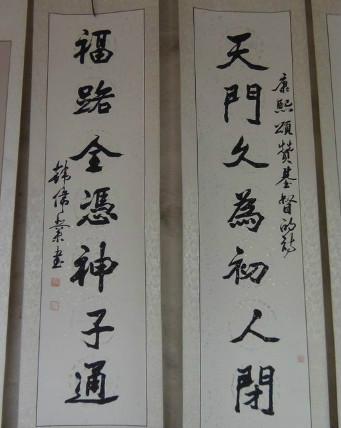 天門久為初人閉
康熙頌贊基督的詩
福路全憑神子通